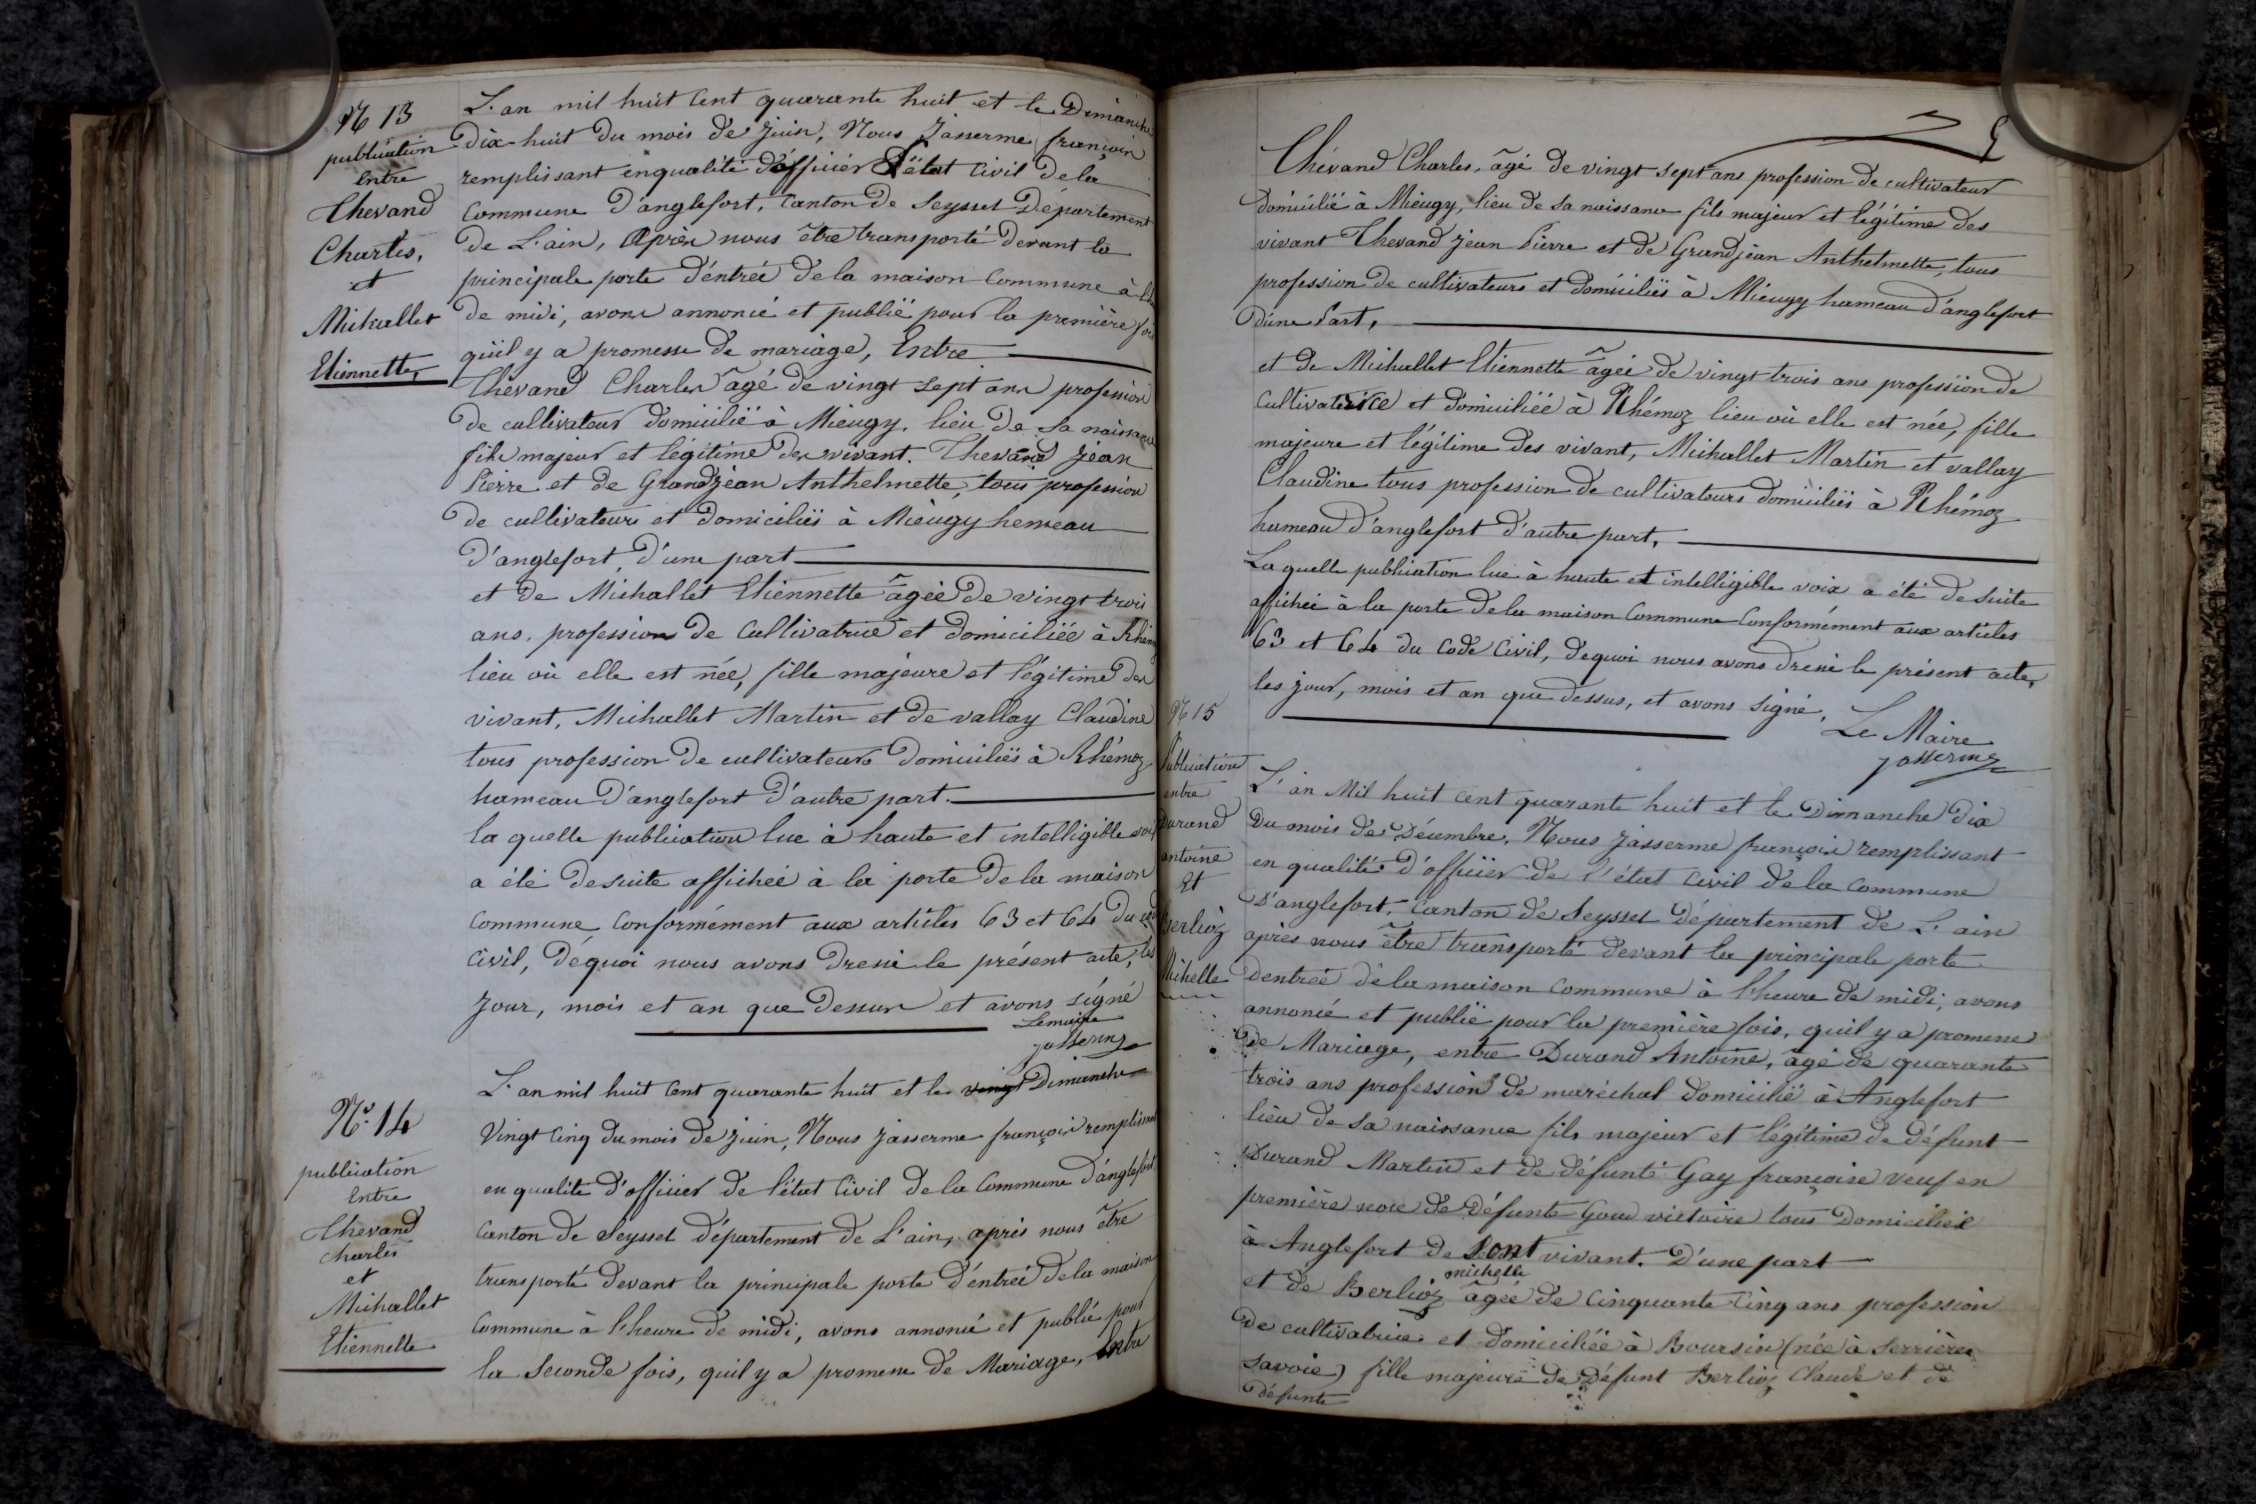 N 13
publication
entre
Thevand
Charles,
et
Michallet
Etiennette,
L'an mil huit cent quarante huit et le Dimanche
dix-huit du mois de juin, Nous Jasserme françois
remplissant enqualité d'officier d'état civil de la
commune d'anglefort, canton de Seyssel Département
de L'ain, Après nous être transporté devant la
principale porte d'éntrée de la maison commune à
de midi, avons annoncé et publié pour la première fois
qu'il y a promesse de mariage, Entre
Thevand Charles âgé de vingt sept ans profession
de cultivateur domicilié à Mieugy, lieu de sa naissance
fils majeur et légitime des vivant. Thevand jéan
Pierre et de Grandjéan Anthelmette, tous profession
de cultivateurs et domiciliés à Miéugy hemeau
d'anglefort, d'une part
et de Michallet Etiennette âgée de vingt trois
ans, profession de cultivatrice et domiciliée à Rhémoz
lieu où elle est née, fille majeure et légitime des
vivant, Michallet Martin et de vallay Claudine
tous profession de cultivateurs domiciliés à Rhémoz
hameau d'anglefort d'autre part.
la quelle publication lue à haute et intelligible voix
a été desuite affichée à la porte de la maison
commune conformément aux articles 63 et 64 du code
civil, déquoi nous avons dressé le présent acte, les
jour, mois et an que dessus et avons signé
Lemaire
jasserme
N° 14
publication
entre
Thevand
charles
et
Michallet
Etiennette
L'an mil huit cent quarante huit et le vingt Dimanche
Vingt cinq du mois de juin, Nous jasserme françois remplissant
en qualité d'officier de l'état civil de la commune d'anglefort
canton de Seyssel département de L'ain, après nous être
transporté devant la principale porte d'éntrée de la maison
commune à l'heure de midi, avons annoncé et publié pour
la seconde fois, quil y a promesse de Mariage, Entre
Thévand Charles, âgé de vingt sept ans profession de cultivateur
domicilié à Miéugy, lieu de sa naissance fils majeur et légitime des
vivant Thevand jean Pierre et de Grandjéan Anthelmette, tous
profession de cultivateurs et domiciliés à Miéugy hameau d'anglefort
d'une Part,
et de Michallet Etiennette âgée de vingt trois ans profession de
cultivatrice et domiciliée à Rhémoz lieu où elle est née, fille
majeure et légitime des vivant, Michallet Martin et vallay
Claudine tous profession de cultivateurs domiciliés à Rhémoz
hameau d'anglefort d'autre part,
La quelle publication lue à haute et intelligible voix a été desuite
affichée à la porte de la maison commune conformément aux articles
63 et 64 du code civil, dequoi nous avons dressé le présent acte,
les jour, mois et an que dessus, et avons signé,
Le Maire
jasserme
N 15
Publication
entre
Durand
antoine
Et
Berlioz
Michelle
L'an Mil huit cent quarante huit et le Dimanche dix
du mois de Décembre, Nous jasserme françois remplissant
en qualité d'officier de l'état civil de la commune
d'anglefort, canton de Seyssel département de L'ain
après nous être transporté devant la principale porte
dentrée de la maison commune à l'heure de midi, avons
annoncé et publié pour la première fois, quil y a promesse
de Mariage, entre Durand Antoine, âgé de quarante
trois ans profession de maréchal domicilié à Anglefort
lieu de sa naissance fils majeur et légitime de défunt
Durand Martin et de défunte Gay françoise veuf en
première noce de défunte Goux victoire tous domiciliés
à Anglefort de sont vivant. D'une part
et de Berlioz michelle âgée de cinquante cinq ans profession
de cultivatrice et domiciliée à Boursin (née à Serrières
savoie) fille majeure de défunt Berlioz Claude et de
défunte